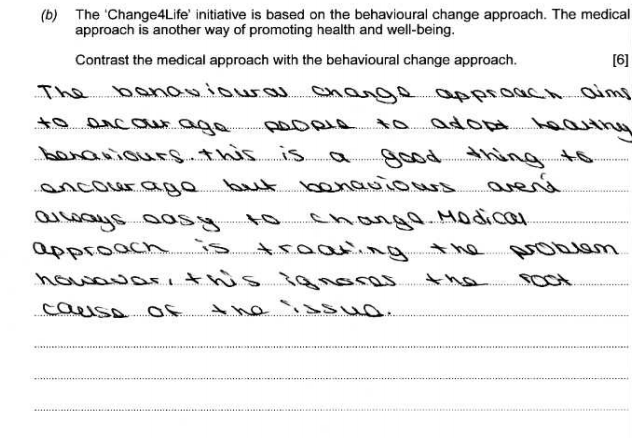 (b) The 'Change4Life' initiative is based on the behavioural change approach. The medical
approach is another way of promoting health and well-being.
Contrast the medical approach with the behavioural change approach. [6]
The behavioural change approach aims
to encourage people to adopt healthy
behaviours. this is a good thing to
encourage but behaviours arent
always easy to change. Medical
approach is treating the problem
however, this ignores the root
cause of the issue.